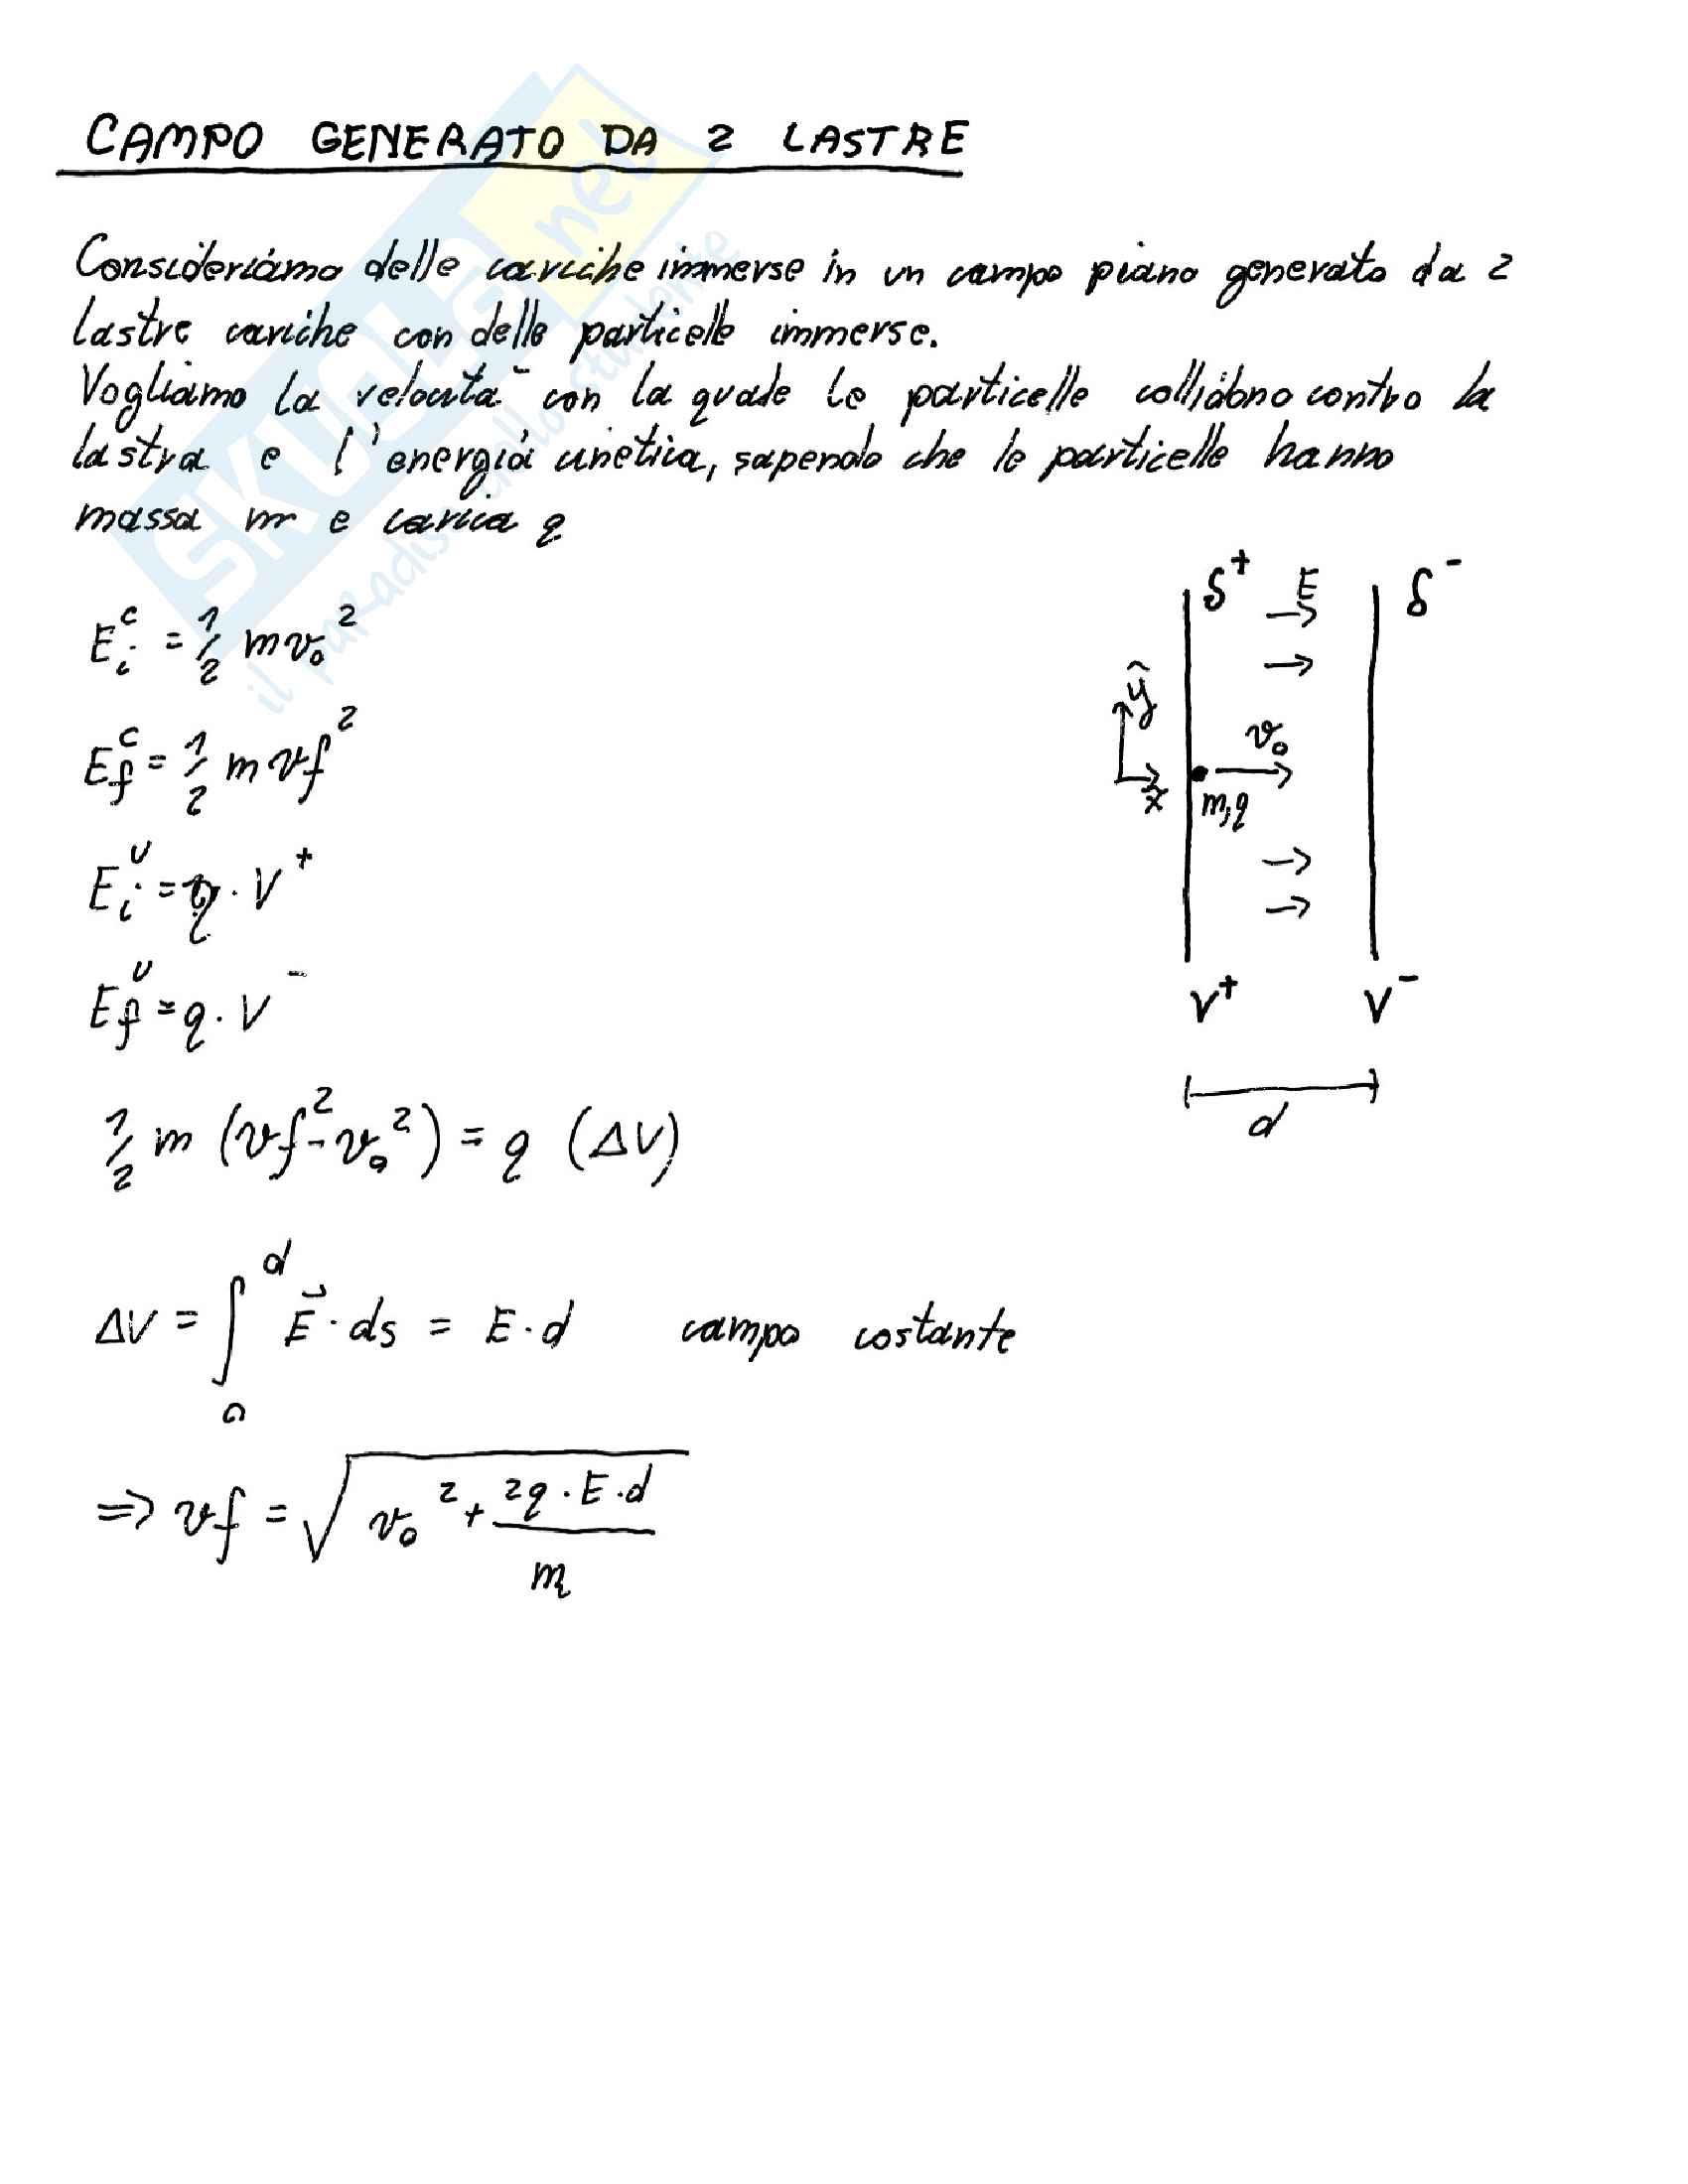 CAMPO GENERATO DA 2 LASTRE
Consideriamo delle cariche immerse in un campo piano generato da 2
lastre cariche con delle particelle immerse.
Vogliamo la velocità con la quale le particelle collidono contro la
lastra e l'energia cinetica, sapendo che le particelle hanno
massa m e carica q
E_i^c = 1/2 m v_0^2
E_f^c = 1/2 m vf^2
E_i^U = q · V^+
E_f^U = q · V^-
1/2 m (vf^2 - v_0^2) = q (ΔV)
ΔV = ∫_0^d E⃗ · ds = E · d campo costante
=> vf = √(v_0^2 + 2q · E · d / m)
δ^+ E δ^-
ŷ
v_0
x̂ m,q
V^+ V^-
d
SKUOLA.net
il paradiso dello studente